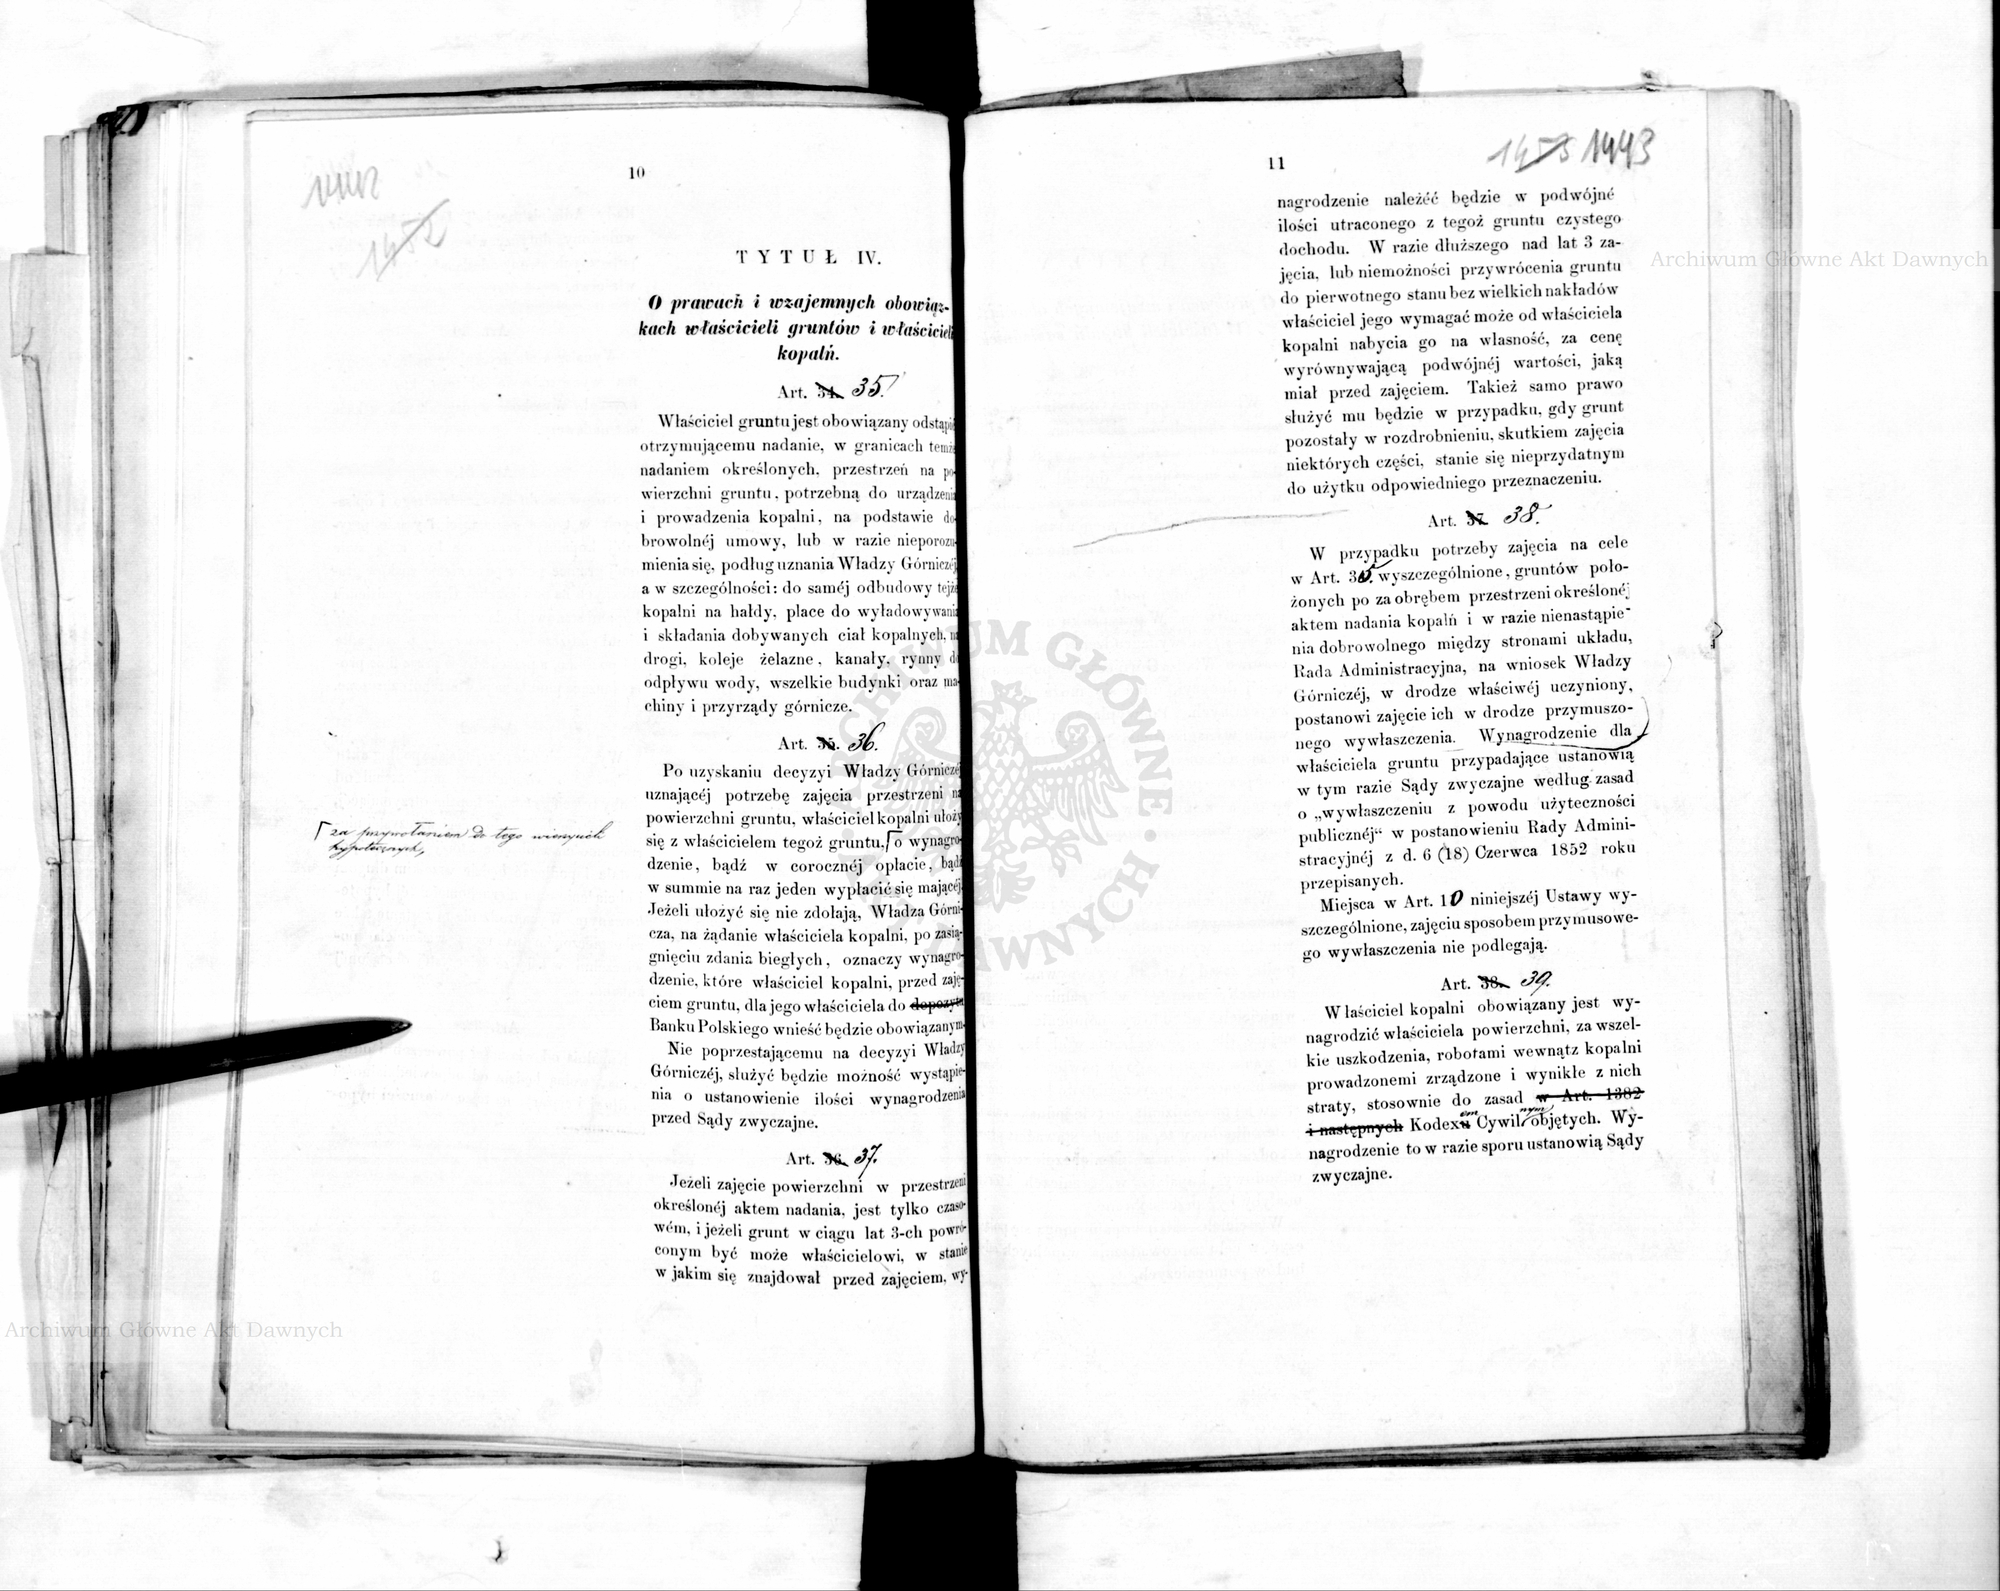 1442
1452
10
TYTUŁ IV.
O prawach i wzajemnych obowiąz-
kach właścicieli gruntów i właścicieli
kopalń.
Art. 34. 35.
Właściciel gruntu jest obowiązany odstąpić
otrzymującemu nadanie, w granicach temże
nadaniem określonych, przestrzeń na po-
wierzchni gruntu, potrzebną do urządzenia
i prowadzenia kopalni, na podstawie do-
browolnéj umowy, lub w razie nieporozu-
mienia się, podług uznania Władzy Górniczéj,
a w szczególności: do saméj odbudowy tejże
kopalni na hałdy, place do wyładowywania
i składania dobywanych ciał kopalnych, na
drogi, koleje żelazne, kanały, rynny do
odpływu wody, wszelkie budynki oraz ma-
chiny i przyrządy górnicze.
Art. 35. 36.
Po uzyskaniu decyzyi Władzy Górniczéj
uznającéj potrzebę zajęcia przestrzeni na
powierzchni gruntu, właściciel kopalni ułoży
się z właścicielem tegoż gruntu,⌈o wynagro-
⌈za przywołaniem do tego wierzycieli
hypotecznych,
dzenie, bądź w corocznéj opłacie, bądź
w summie na raz jeden wypłacić się mającéj.
Jeżeli ułożyć się nie zdołają, Władza Górni-
cza, na żądanie właściciela kopalni, po zasią-
gnięciu zdania biegłych, oznaczy wynagro-
dzenie, które właściciel kopalni, przed zaję-
ciem gruntu, dla jego właściciela do depozytu
Banku Polskiego wnieść będzie obowiązanym.
Nie poprzestającemu na decyzyi Władzy
Górniczéj, służyć będzie możność wystąpie-
nia o ustanowienie ilości wynagrodzenia
przed Sądy zwyczajne.
Art. 36. 37.
Jeżeli zajęcie powierzchni w przestrzeni
określonéj aktem nadania, jest tylko czaso-
wém, i jeżeli grunt w ciągu lat 3-ch powró-
conym być może właścicielowi, w stanie
w jakim się znajdował przed zajęciem, wy-
11
1453 1443
nagrodzenie należéć będzie w podwójné
ilości utraconego z tegoż gruntu czystego
dochodu. W razie dłuższego nad lat 3 za-
jęcia, lub niemożności przywrócenia gruntu
do pierwotnego stanu bez wielkich nakładów
właściciel jego wymagać może od właściciela
kopalni nabycia go na własność, za cenę
wyrównywającą podwójnéj wartości, jaką
miał przed zajęciem. Takież samo prawo
służyć mu będzie w przypadku, gdy grunt
pozostały w rozdrobnieniu, skutkiem zajęcia
niektórych części, stanie się nieprzydatnym
do użytku odpowiedniego przeznaczeniu.
Art. 37. 38.
W przypadku potrzeby zajęcia na cele
w Art. 35. wyszczególnione, gruntów poło-
żonych po za obrębem przestrzeni określonéj
aktem nadania kopalń i w razie nienastąpie-
nia dobrowolnego między stronami układu,
Rada Administracyjna, na wniosek Władzy
Górniczéj, w drodze właściwéj uczyniony,
postanowi zajęcie ich w drodze przymuszo-
nego wywłaszczenia. Wynagrodzenie dla
właściciela gruntu przypadające ustanowią
w tym razie Sądy zwyczajne według zasad
o „wywłaszczeniu z powodu użyteczności
publicznéj“ w postanowieniu Rady Admini-
stracyjnéj z d. 6 (18) Czerwca 1852 roku
przepisanych.
Miejsca w Art. 10 niniejszéj Ustawy wy-
szczególnione, zajęciu sposobem przymusowe-
go wywłaszczenia nie podlegają.
Art. 38. 39.
Właściciel kopalni obowiązany jest wy-
nagrodzić właściciela powierzchni, za wszel-
kie uszkodzenia, robotami wewnątz kopalni
prowadzonemi zrządzone i wynikłe z nich
straty, stosownie do zasad w Art. 1382
i następnych Kodexem Cywilnym objętych. Wy-
nagrodzenie to w razie sporu ustanowią Sądy
zwyczajne.
Archiwum Główne Akt Dawnych
ARCHIWUM GŁÓWNE AKT DAWNYCH
Archiwum Główne Akt Dawnych